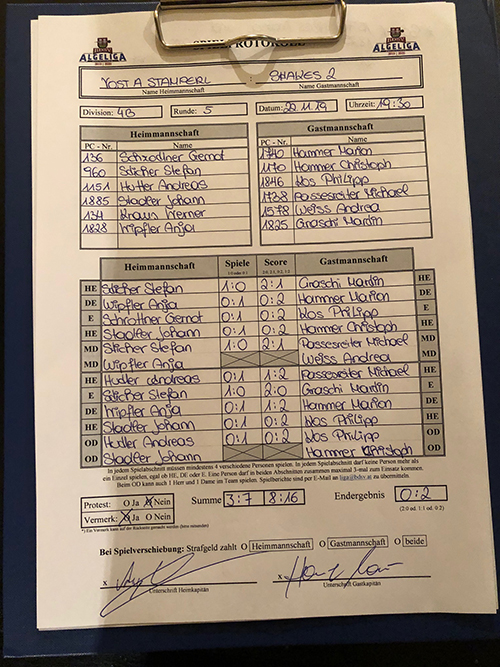 ALGELIGA SPIELPROTOKOLL ALGELIGA
YOST A STAMPERL : SNAKES 2
Name Heimmannschaft Name Gastmannschaft
Division: 4B Runde: 5 Datum: 20.11.19 Uhrzeit: 19:30
Heimmannschaft Gastmannschaft
PC - Nr. Name PC - Nr. Name
136 Schrottner Gernot 1740 Hammer Marion
960 Sticher Stefan 1170 Hammer Christoph
1151 Hutter Andreas 1846 Kos Philipp
1885 Stadler Johann 1738 Passesreiter Michael
134 Kraus Werner 1578 Weiss Andrea
1828 Wipfler Anja 1825 Graschi Martin
Heimmannschaft Spiele Score Gastmannschaft
1:0 oder 0:1 2:0, 2:1, 0:2, 1:2
HE Sticher Stefan 1:0 2:1 Graschi Martin HE
DE Wipfler Anja 0:1 0:2 Hammer Marion DE
E Schrottner Gernot 0:1 0:2 Kos Philipp E
HE Stadler Johann 0:1 0:2 Hammer Christoph HE
MD Sticher Stefan 1:0 2:1 Passesreiter Michael MD
MD Wipfler Anja Weiss Andrea MD
HE Hutter Andreas 0:1 1:2 Passesreiter Michael HE
E Sticher Stefan 1:0 2:0 Graschi Martin E
DE Wipfler Anja 0:1 1:2 Hammer Marion DE
HE Stadler Johann 0:1 0:2 Kos Philipp HE
OD Hutter Andreas 0:1 0:2 Kos Philipp OD
OD Stadler Johann Hammer Christoph OD
In jedem Spielabschnitt müssen mindestens 4 verschiedene Personen spielen. In jedem Spielabschnitt darf keine Person mehr als
ein Einzel spielen, egal ob HE, DE oder E. Eine Person darf in beiden Abschnitten zusammen maximal 3-mal zum Einsatz kommen.
Beim OD kann auch 1 Herr und 1 Dame im Team spielen. Spielberichte sind per E-Mail an liga@bdsv.at zu übermitteln.
Protest: O Ja O Nein Summe 3:7 8:16 Endergebnis 0:2
Vermerk: O Ja O Nein (2:0 od. 1:1 od. 0:2)
*) Ein Vermerk kann auf der Rückseite gemacht werden (bitte ankreuzen)
Bei Spielverschiebung: Strafgeld zahlt O Heimmannschaft O Gastmannschaft O beide
x x
Unterschrift Heimkapitän Unterschrift Gastkapitän